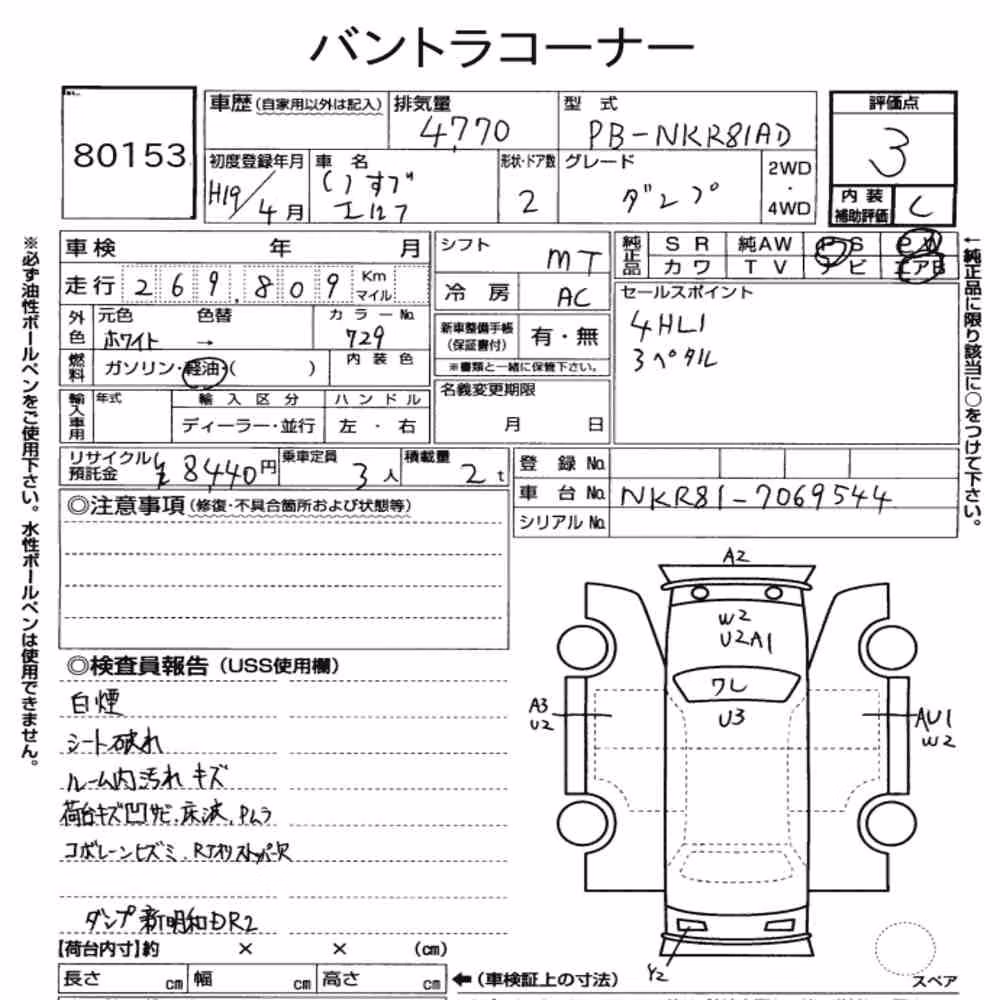 バントラコーナー
80153
車歴(自家用以外は記入) 排気量 型式 評価点
4770 PB-NKR81AD 3
初度登録年月 車名 形状・ドア数 グレード 2WD・4WD 内装補助評価
H19/4月 いすゞ エルフ 2 ダンプ C
車検 年 月 シフト MT 純正品 SR 純AW PS PW
走行 269,809 Km マイル 冷房 AC カワ TV ナビ エアB
外色 元色 色替 カラーNo. セールスポイント
ホワイト → 729 新車整備手帳(保証書付) 有・無 4HL1
燃料 ガソリン・軽油・( ) 内装色 ※書類と一緒に保管下さい。 3ペダル
輸入車用 年式 輸入区分 ハンドル 名義変更期限
ディーラー・並行 左・右 月 日
リサイクル預託金 ¥8,440円 乗車定員 3人 積載量 2t 登録No.
車台No. NKR81-7069544
◎注意事項(修復・不具合箇所および状態等) シリアルNo.
※必ず油性ボールペンをご使用下さい。水性ボールペンは使用できません。
←純正品に限り該当に○をつけて下さい。
A2
W2
U2A1
ワレ
U3
A3
U2
AU1
W2
Y2
スペア
◎検査員報告(USS使用欄)
白煙
シート破れ
ルーム内汚れ キズ
荷台キズ凹サビ、床波、Pムラ
コボレーンヒズミ、
ダンプ 新明和DR2
【荷台内寸】約 × × (cm)
長さ cm 幅 cm 高さ cm ←(車検証上の寸法)